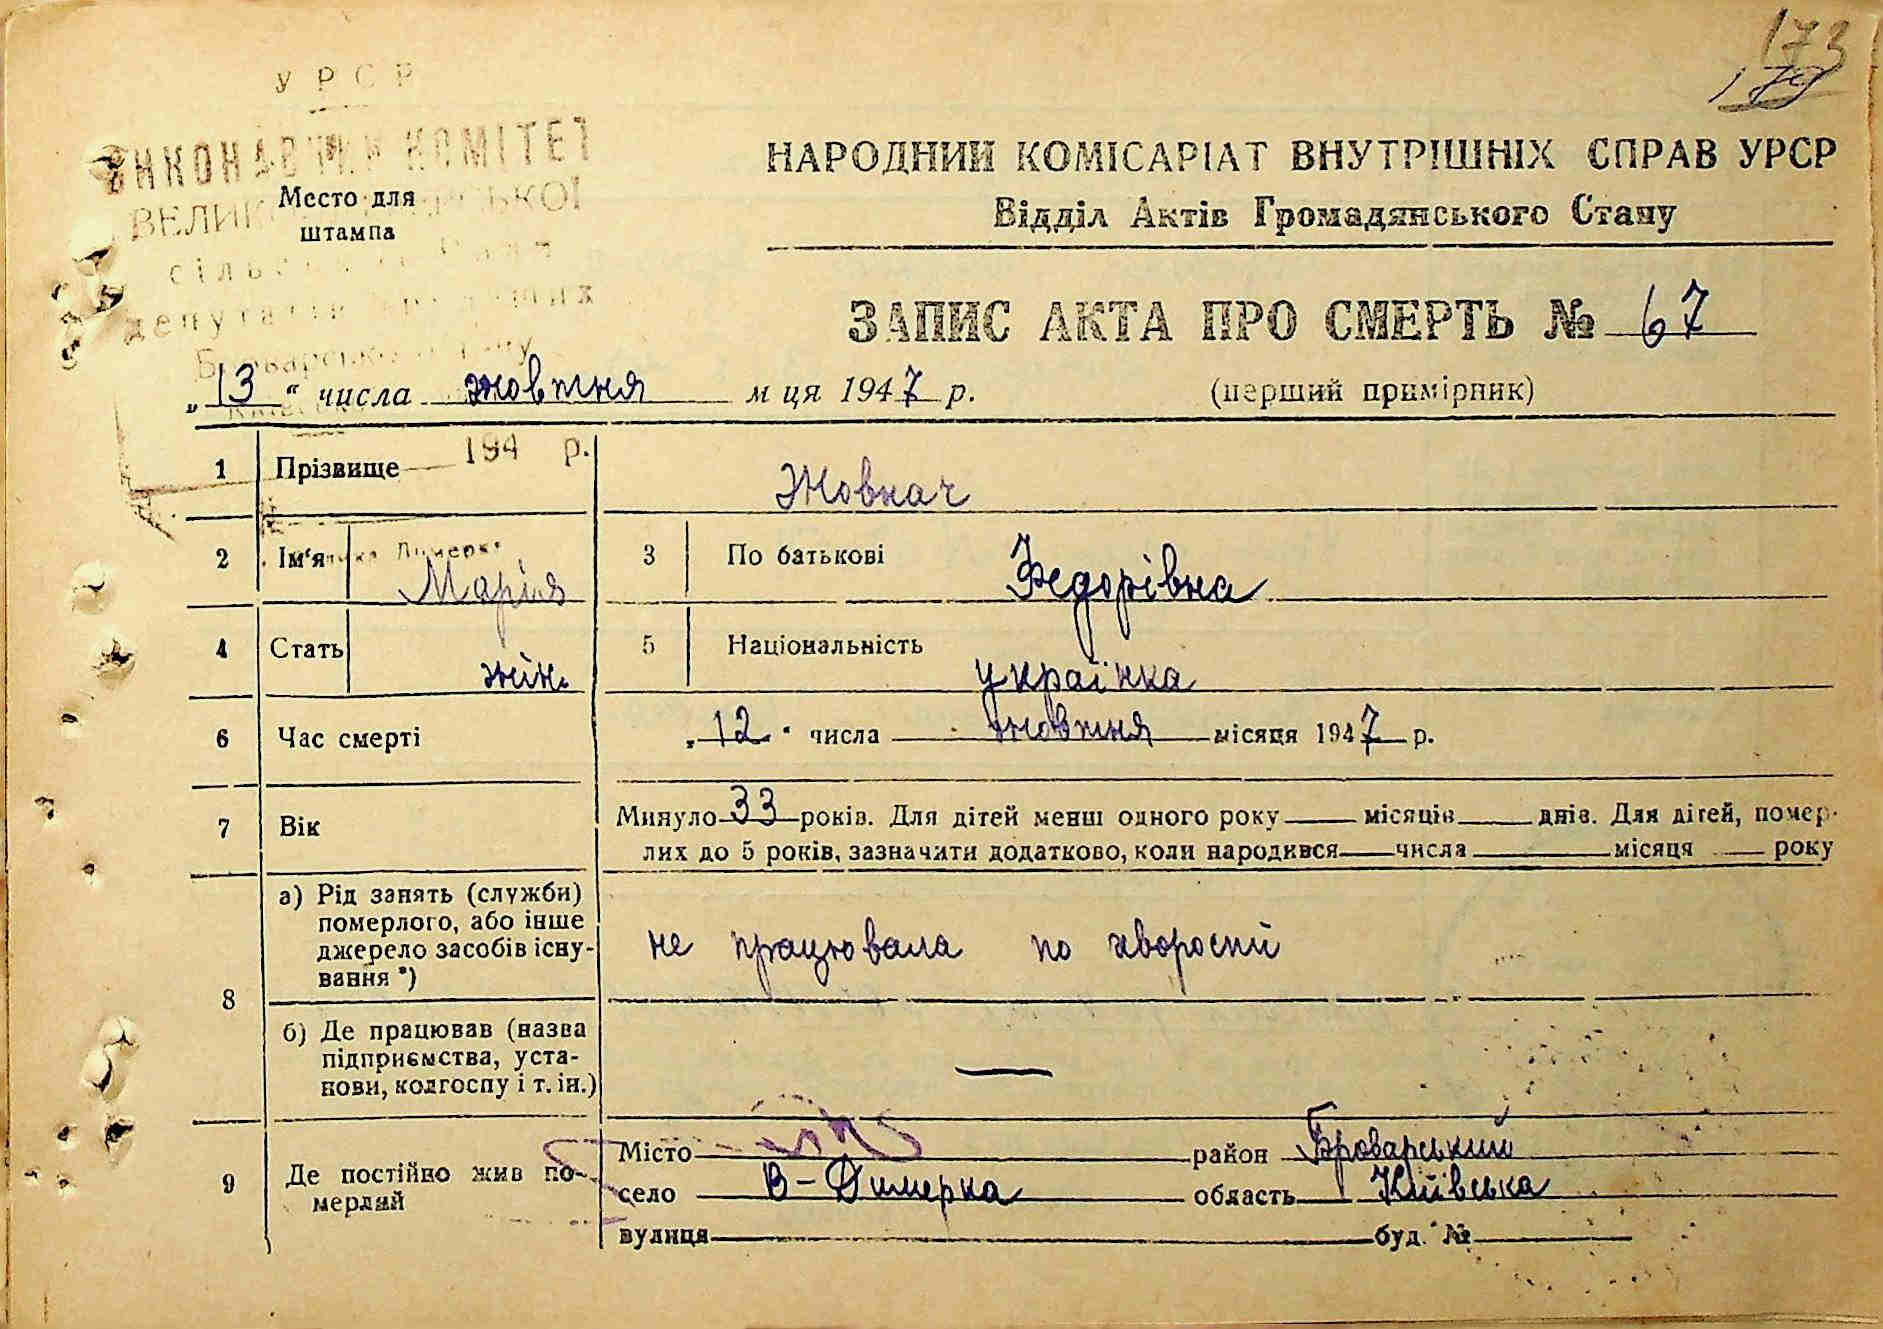 173
179
УРСР
ВИКОНАВЧИЙ КОМІТЕТ
Место для
штампа
НАРОДНИЙ КОМІСАРІАТ ВНУТРІШНІХ СПРАВ УРСР
Відділ Актів Громадянського Стану
ЗАПИС АКТА ПРО СМЕРТЬ № 67
„13“ числа жовтня м ця 1947 р. (перший примірник)
194 р.
1 Прізвище Жовнач
2 Ім'я Марія 3 По батькові Федорівна
4 Стать жін. 5 Національність українка
6 Час смерті „12“ числа жовтня місяця 1947 р.
7 Вік Минуло 33 років. Для дітей менш одного року місяців днів. Для дітей, помер-
лих до 5 років, зазначити додатково, коли народився числа місяця року
8 а) Рід занять (служби)
померлого, або інше
джерело засобів існу-
вання *)
не працювала по хворости
б) Де працював (назва
підприємства, уста-
нови, колгоспу і т. ін.)
—
9 Де постійно жив по-
мерлий
Місто район Броварський
село В-Димерка область Київська
вулиця буд. №